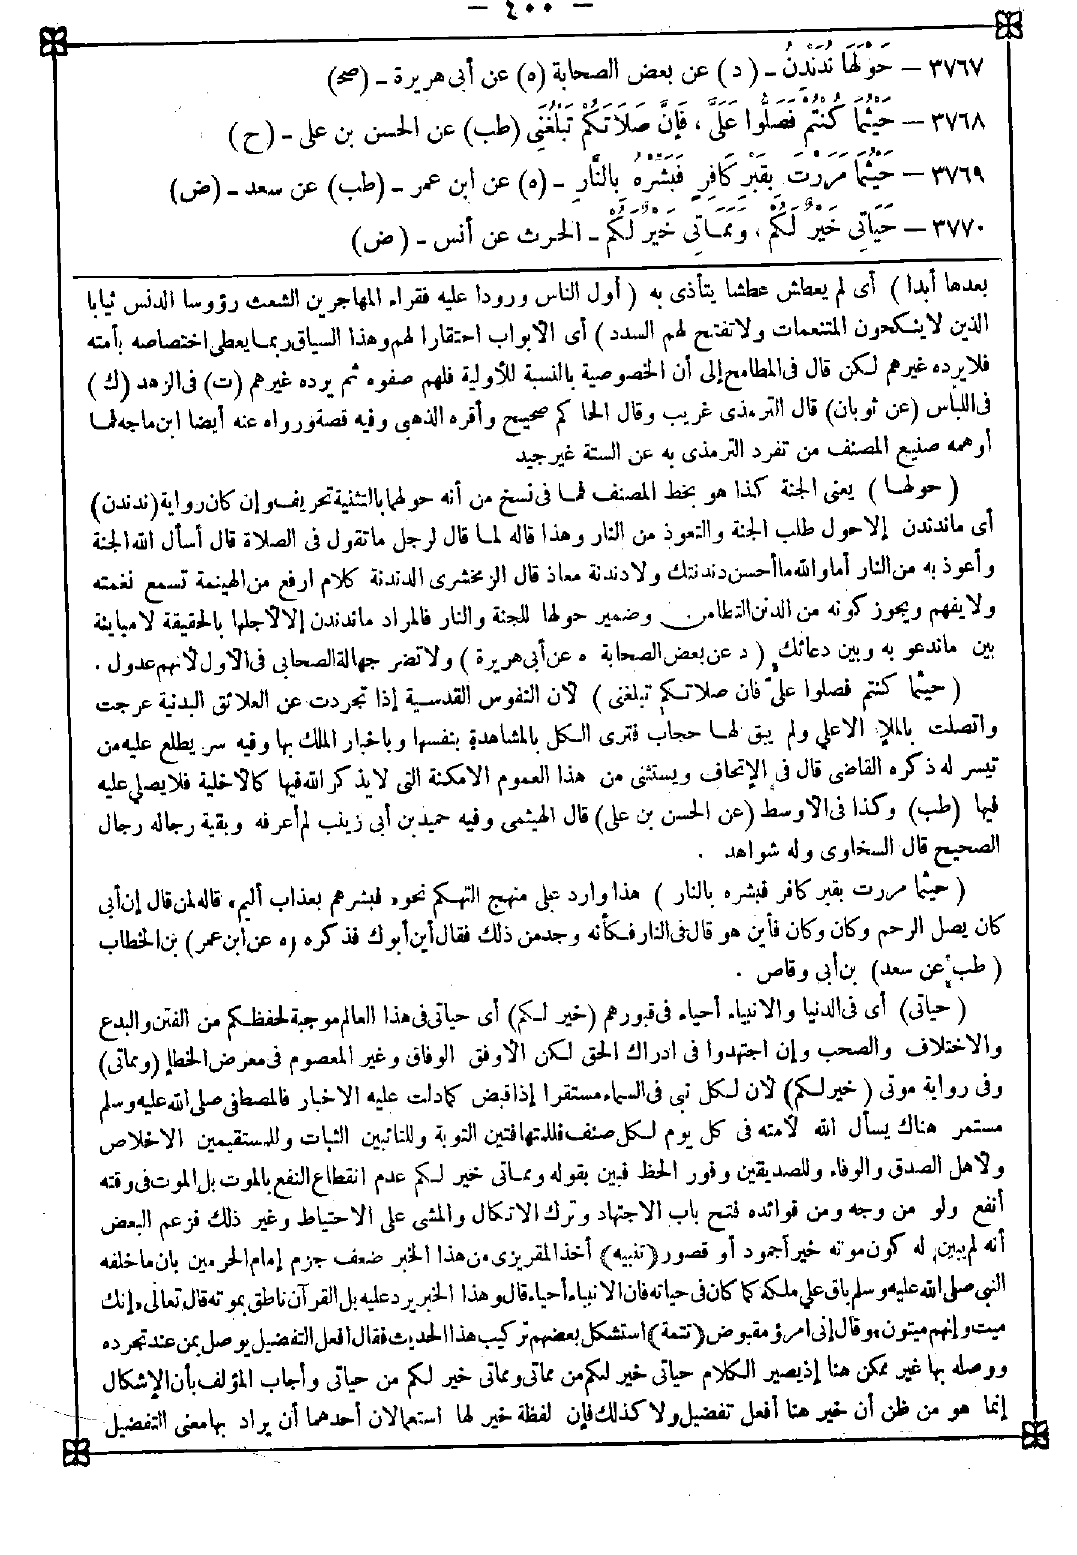 — ٤٠٠ —
٣٧٦٧ — حَوْلَهَا نُدَنْدِنُ - ( د ) عن بعض الصحابة (ه) عن أبى هريرة - (صح)
٣٧٦٨ — حَيْثُمَا كُنْتُمْ فَصَلُّوا عَلَىَّ ، فَإِنَّ صَلَاتَكُمْ تَبْلُغُنِى (طب) عن الحسن بن على - (ح)
٣٧٦٩ — حَيْثُمَا مَرَرْتَ بِقَبْرِ كَافِرٍ فَبَشِّرْهُ بِالنَّارِ - (ه) عن ابن عمر - (طب) عن سعد - (ض)
٣٧٧٠ — حَيَاتِى خَيْرٌ لَكُمْ ، وَمَمَاتِى خَيْرٌ لَكُمْ - الحرث عن أنس - (ض)
بعدها أبدا ) أى لم يعطش عطشا يتأذى به ( أول الناس ورودا عليه فقراء المهاجرين الشعث رؤوسا الدنس ثيابا
الذين لا ينكحون المتنعمات ولا تفتح لهم السدد ) أى الأبواب احتقارا لهم وهذا السياق ربما يعطى اختصاصه بأمته
فلا يرده غيرهم لكن قال فى المطامح إلى أن الخصوصية بالنسبة للأولية فلهم صفوه ثم يرده غيرهم (ت) فى الزهد (ك )
فى اللباس (عن ثوبان) قال الترمذى غريب وقال الحا كم صحيح وأقره الذهبى وفيه قصة ورواه عنه أيضا ابن ماجه فما
أوهمه صنيع المصنف من تفرد الترمذى به عن الستة غير جيد
( حولها ) يعنى الجنة كذا هو بخط المصنف فما فى نسخ من أنه حولهما بالتثنية تحريف وإن كان رواية (ندندن)
أى ماندندن إلا حول طلب الجنة والتعوذ من النار وهذا قاله لما قال لرجل ما تقول فى الصلاة قال أسأل الله الجنة
وأعوذ به من النار أما والله ما أحسن دندنتك ولا دندنة معاذ قال الزمخشرى الدندنة كلام ارفع من الهينمة تسمع نغمته
ولا يفهم ويجوز كونه من الدنن التطامن وضمير حولها للجنة والنار فالمراد ماندندن إلا لأجلها بالحقيقة لا مباينة
بين ماندعو به وبين دعائك ( د عن بعض الصحابة ه عن أبى هريرة ) ولا تضر جهالة الصحابى فى الأول لأنهم عدول .
( حيثما كنتم فصلوا علىّ فان صلاتكم تبلغنى ) لأن النفوس القدسية إذا تجردت عن العلائق البدنية عرجت
واتصلت بالملإ الأعلى ولم يبق لها حجاب فترى الكل بالمشاهدة بنفسها وباخبار الملك بها وفيه سر يطلع عليه من
تيسر له ذكره القاضى قال فى الإتحاف ويستثنى من هذا العموم الأمكنة التى لا يذكر الله فيها كالأخلية فلا يصلى عليه
فيها (طب) وكذا فى الأوسط (عن الحسن بن على) قال الهيثمى وفيه حميد بن أبى زينب لم أعرفه وبقية رجاله رجال
الصحيح قال السخاوى وله شواهد .
( حيثما مررت بقبر كافر فبشره بالنار ) هذا وارد على منهج التهكم نحو، فبشرهم بعذاب أليم، قاله لمن قال إن أبى
كان يصل الرحم وكان وكان فأين هو قال فى النار فكأنه وجد من ذلك فقال أين أبوك فذكره (ه عن ابن عمر) بن الخطاب
( طب عن سعد) بن أبى وقاص .
( حياتى) أى فى الدنيا والأنبياء أحياء فى قبورهم (خير لكم) أى حياتى فى هذا العالم موجبة لحفظكم من الفتن والبدع
والاختلاف والصحب وإن اجتهدوا فى ادراك الحق لكن الأوفق الوفاق وغير المعصوم فى معرض الخطإ (ومماتى)
وفى رواية موتى ( خير لكم) لأن لكل نبى فى السماء مستقرا إذا قبض كما دلت عليه الأخبار فالمصطفى صلى الله عليه وسلم
مستمر هناك يسأل الله لأمته فى كل يوم لكل صنف فللمتهافتين التوبة وللتائبين الثبات وللمستقيمين الاخلاص
ولأهل الصدق والوفاء وللصديقين وفور الحظ فبين بقوله ومماتى خير لكم عدم انقطاع النفع بالموت بل الموت فى وقته
أنفع ولو من وجه ومن فوائده فتح باب الاجتهاد وترك الاتكال والمشى على الاحتياط وغير ذلك فزعم البعض
أنه لم يبين له كون موته خير أجمود أو قصور (تنبيه) أخذ المقريزى من هذا الخبر ضعف جزم إمام الحرمين بان ما خلفه
النبى صلى الله عليه وسلم باق على ملكه كما كان فى حياته فان الأنبياء أحياء قال وهذا الخبر يرد عليه بل القرآن ناطق بموته قال تعالى، إنك
ميت وإنهم ميتون، وقال إنى امرؤ مقبوض (تتمة) استشكل بعضهم تركيب هذا الحديث فقال أفعل التفضيل يوصل بمن عند تجرده
ووصله بها غير ممكن هنا إذ يصير الكلام حياتى خير لكم من مماتى ومماتى خير لكم من حياتى وأجاب المؤلف بأن الإشكال
إنما هو من ظن أن خير هنا أفعل تفضيل ولا كذلك فإن لفظة خير لها استعمالان أحدهما أن يراد بها معنى التفضيل